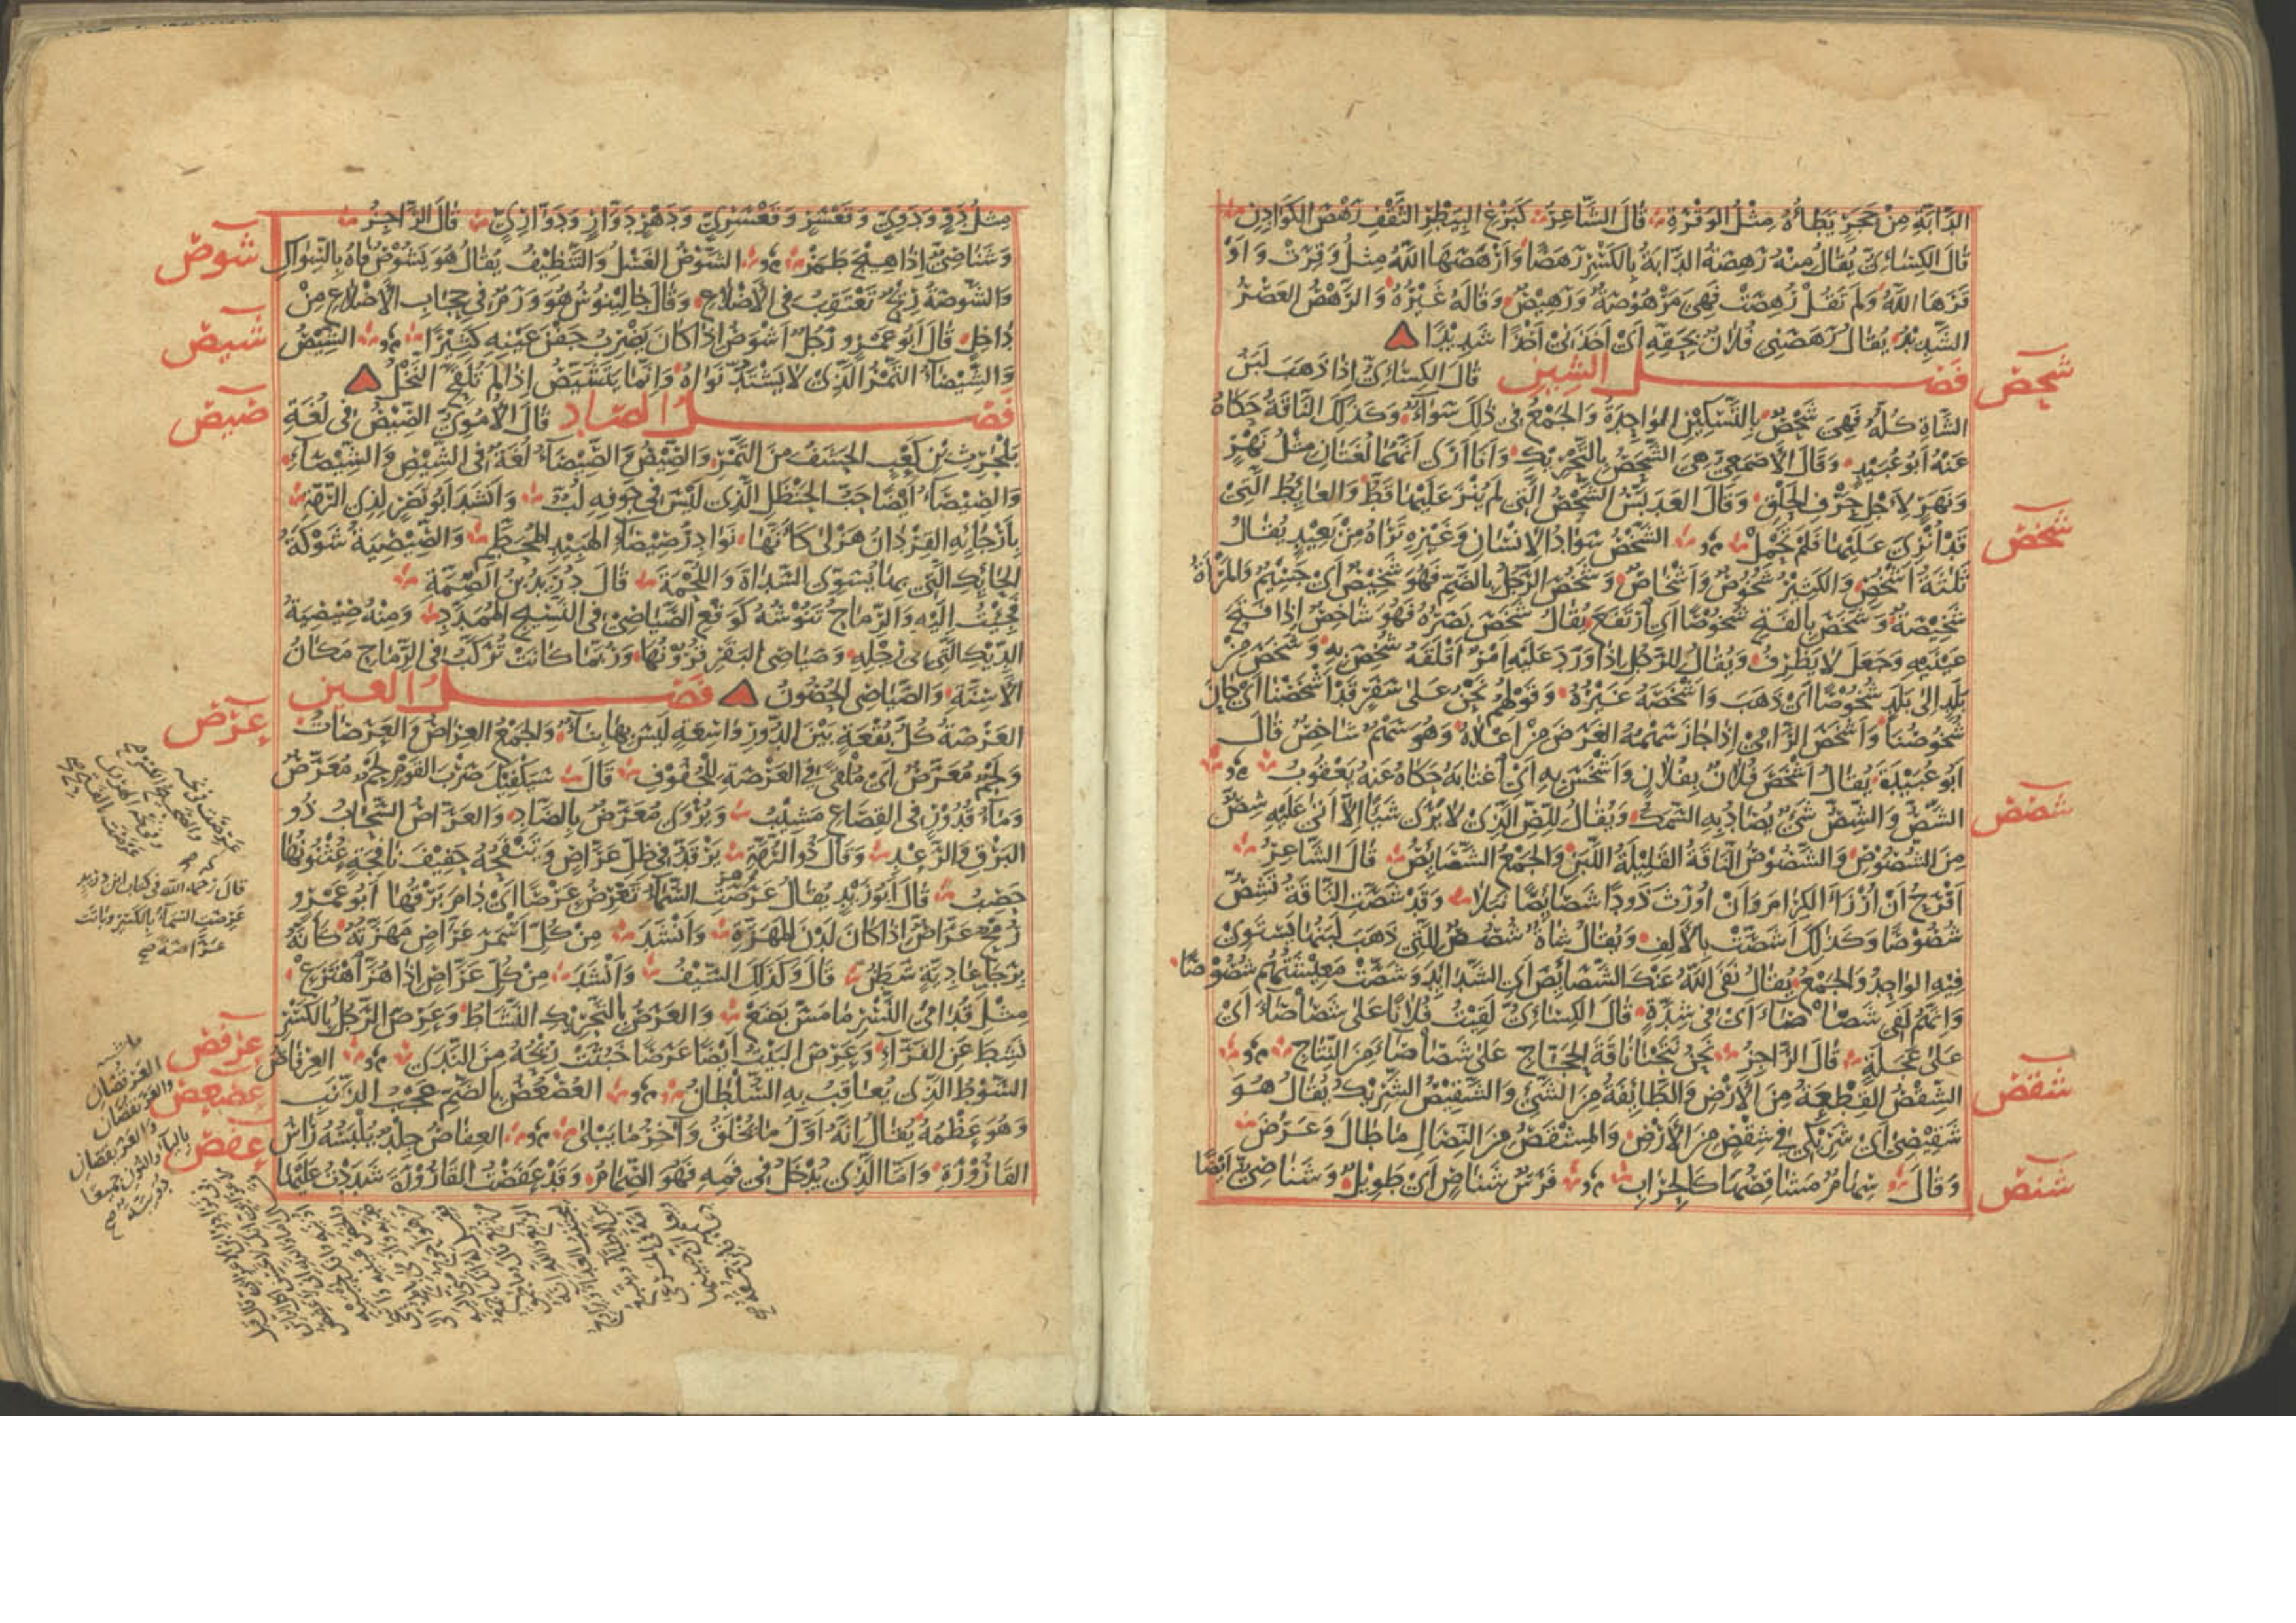 الدَّابَّةِ مِنْ حَجَرٍ يَطَأُهُ مِثْلُ الوَقْرَةِ قَالَ الشَّاعِرُ كَبَزْغِ البِيَطْرِ الثَّقْفِ رَهْصَ الكَوَادِنِ
قَالَ الكِسَائِيُّ يُقَالُ مِنْهُ رَهِصَتِ الدَّابَّةُ بِالكَسْرِ رَهَصًا وَأَرْهَصَهَا اللّٰهُ مِثْلُ وَقِرَتْ وَأَوْ
قَرَهَا اللّٰهُ وَلَمْ تَقُلْ رُهِصَتْ فَهِيَ مَرْهُوصَةٌ وَرَهِيصٌ وَقَالَهُ غَيْرُهُ وَالرَّهْصُ العَصْرُ
الشَّدِيدُ يُقَالُ رَهَصَنِي فُلَانٌ بِحَقِّهِ أَيْ أَخَذَنِي أَخْذًا شَدِيدًا
شحص
فصل الشين قَالَ الكِسَائِيُّ إِذَا ذَهَبَ لَبَنُ
الشَّاةِ كُلُّهُ فَهِيَ شَحْصٌ بِالتَّسْكِينِ الوَاحِدَةُ وَالجَمْعُ فِي ذٰلِكَ سَوَاءٌ وَكَذٰلِكَ النَّاقَةُ حَكَاهُ
عَنْهُ أَبُو عُبَيْدٍ وَقَالَ الأَصْمَعِيُّ هِيَ الشَّحَصُ بِالتَّحْرِيكِ وَأَنَا أَرَى أَنَّهُمَا لُغَتَانِ مِثْلُ نَهْرٍ
وَنَهَرٍ لِأَجْلِ حَرْفِ الحَلْقِ وَقَالَ العَدَبَّسُ الشَّحَصُ الَّتِي لَمْ يُنْزَ عَلَيْهَا قَطُّ وَالعَائِطُ الَّتِي
شخص
قَدْ أُنْزِيَ عَلَيْهَا فَلَمْ تَحْمِلْ الشَّخْصُ سَوَادُ الإِنْسَانِ وَغَيْرِهِ تَرَاهُ مِنْ بَعِيدٍ يُقَالُ
ثَلٰثَةُ أَشْخُصٍ وَالكَثِيرُ شُخُوصٌ وَأَشْخَاصٌ وَشَخُصَ الرَّجُلُ بِالضَّمِّ فَهُوَ شَخِيصٌ أَيْ جَسِيمٌ وَالمَرْأَةُ
شَخِيصَةٌ وَشَخَصَ بِالفَتْحِ شُخُوصًا أَيِ ارْتَفَعَ يُقَالُ شَخَصَ بَصَرُهُ فَهُوَ شَاخِصٌ إِذَا فَتَحَ
عَيْنَيْهِ وَجَعَلَ لَا يَطْرِفُ وَيُقَالُ لِلرَّجُلِ إِذَا وَرَدَ عَلَيْهِ أَمْرٌ أَقْلَقَهُ شُخِصَ بِهِ وَشَخَصَ مِنْ
بَلَدٍ إِلَى بَلَدٍ شُخُوصًا أَيْ ذَهَبَ وَأَشْخَصَهُ غَيْرُهُ وَقَوْلُهُمْ نَحْنُ عَلَى سَفَرٍ قَدْ أَشْخَصْنَا أَيْ حَانَ
شُخُوصُنَا وَأَشْخَصَ الرَّامِي إِذَا جَازَ سَهْمُهُ الغَرَضَ مِنْ أَعْلَاهُ وَهُوَ سَهْمٌ شَاخِصٌ قَالَ
أَبُو عُبَيْدَةَ يُقَالُ أَشْخَصَ فُلَانٌ بِفُلَانٍ وَأَشْخَسَ بِهِ أَيِ اغْتَابَهُ حَكَاهُ عَنْهُ يَعْقُوبُ
شصص
الشَّصُّ وَالشِّصُّ شَيْءٌ يُصَادُ بِهِ السَّمَكُ وَيُقَالُ لِلِّصِّ الَّذِي لَا يَرَى شَيْئًا إِلَّا أَتَى عَلَيْهِ شِصٌّ
مِنَ الشُّصُوصِ وَالشَّصُوصُ النَّاقَةُ القَلِيلَةُ اللَّبَنِ وَالجَمْعُ الشَّصَائِصُ قَالَ الشَّاعِرُ
أَفْرَحُ أَنْ أُرْزَأَ الكِرَامَ وَأَنْ أُورَثَ ذَوْدًا شَصَائِصًا نَبَلَا وَقَدْ شَصَّتِ النَّاقَةُ تَشِصُّ
شُصُوصًا وَكَذٰلِكَ أَشَصَّتْ بِالأَلِفِ وَيُقَالُ شَاةٌ شُصُصٌ لِلَّتِي ذَهَبَ لَبَنُهَا يَسْتَوِي
فِيهِ الوَاحِدُ وَالجَمْعُ يُقَالُ نَفَى اللّٰهُ عَنْكَ الشَّصَائِصَ أَيِ الشَّدَائِدَ وَشَصَّتْ مَعِيشَتُهُمْ شُصُوصًا
وَإِنَّهُمْ لَفِي شَصَاصَاءَ أَيْ فِي شِدَّةٍ قَالَ الكِسَائِيُّ لَقِيتُ فُلَانًا عَلَى شَصَاصَاءَ أَيْ
عَلَى عَجَلَةٍ قَالَ الرَّاجِزُ نَحْنُ نَتَجْنَا نَاقَةَ الحَجَّاجِ عَلَى شَصَاصَاءَ مِنَ النِّتَاجِ
شقص
الشِّقْصُ القِطْعَةُ مِنَ الأَرْضِ وَالطَّائِفَةُ مِنَ الشَّيْءِ وَالشَّقِيصُ الشَّرِيكُ يُقَالُ هُوَ
شَقِيصِي أَيْ شَرِيكِي فِي شِقْصٍ مِنَ الأَرْضِ وَالمِشْقَصُ مِنَ النِّصَالِ مَا طَالَ وَعَرُضَ
شنص
وَقَالَ سِهَامٌ مَشَاقِصُهَا كَالحِرَابِ فَرَسٌ شَنَاصٍ أَيْ طَوِيلٌ وَشَنَاصِيٌّ أَيْضًا
مِثْلُ دَوٍّ وَدَوِّيٍّ وَقَعْسَرٍ وَقَعْسَرِيٍّ وَدَهْرٍ دَوَّارٍ وَدَوَّارِيٍّ قَالَ الرَّاجِزُ
شوص
وَشَنَاصِيٌّ إِذَا هِيجَ طَمَرْ الشَّوْصُ الغَسْلُ وَالتَّنْظِيفُ يُقَالُ هُوَ يَشُوصُ فَاهُ بِالسِّوَاكِ
وَالشَّوْصَةُ رِيحٌ تَعْتَقِبُ فِي الأَضْلَاعِ وَقَالَ جَالِينُوسُ هُوَ وَرَمٌ فِي حِجَابِ الأَضْلَاعِ مِنْ
شيص
دَاخِلٍ قَالَ أَبُو عَمْرٍو رَجُلٌ أَشْوَصُ إِذَا كَانَ يَضْرِبُ جَفْنُ عَيْنِهِ كَثِيرًا الشِّيصُ
وَالشِّيصَاءُ التَّمْرُ الَّذِي لَا يَشْتَدُّ نَوَاهُ وَإِنَّمَا يَتَشَيَّصُ إِذَا لَمْ تُلَقَّحِ النَّخْلُ
صيص
فصل الصاد قَالَ الأُمَوِيُّ الصِّيصُ فِي لُغَةِ
بَلْحَرِثِ بْنِ كَعْبٍ الحَشَفُ مِنَ التَّمْرِ وَالصِّيصُ وَالصِّيصَاءُ لُغَةٌ فِي الشِّيصِ وَالشِّيصَاءِ
وَالصِّيصَاءُ أَيْضًا حَبُّ الحَنْظَلِ الَّذِي لَيْسَ فِي جَوْفِهِ لُبٌّ وَأَنْشَدَ أَبُو نَصْرٍ لِذِي الرُّمَّةِ
بِأَرْجَائِهِ القِرْدَانُ هَزْلَى كَأَنَّهَا نَوَادِرُ صِيصَاءِ الهَبِيدِ المُحَطَّمِ وَالصِّيصِيَةُ شَوْكَةُ
الحَائِكِ الَّتِي بِهَا يُسَوِّي السَّدَاةَ وَاللُّحْمَةَ قَالَ دُرَيْدُ بْنُ الصِّمَّةِ
فَجِئْتُ إِلَيْهِ وَالرِّمَاحُ تَنُوشُهُ كَوَقْعِ الصَّيَاصِي فِي النَّسِيجِ المُمَدَّدِ وَمِنْهُ صِيصِيَةُ
الدِّيكِ الَّتِي فِي رِجْلِهِ وَصَيَاصِي البَقَرِ قُرُونُهَا وَرُبَّمَا كَانَتْ تُرَكَّبُ فِي الرِّمَاحِ مَكَانَ
الأَسِنَّةِ وَالصَّيَاصِي الحُصُونُ فصل العين
عرص
العَرْصَةُ كُلُّ بُقْعَةٍ بَيْنَ الدُّورِ وَاسِعَةٍ لَيْسَ بِهَا بِنَاءٌ وَالجَمْعُ العِرَاصُ وَالعَرَصَاتُ
وَلَحْمٌ مُعَرَّصٌ أَيْ مُلْقًى فِي العَرْصَةِ لِلْجُفُوفِ قَالَ سَيَكْفِيكَ ضَرْبَ القَوْمِ لَحْمٌ مُعَرَّصٌ
وَمَاءُ قُدُورٍ فِي القِصَاعِ مَشِيبُ وَيُرْوَى مُعَرَّضٌ بِالضَّادِ وَالعَرَّاصُ السَّحَابُ ذُو
البَرْقِ وَالرَّعْدِ وَقَالَ ذُو الرُّمَّةِ يَرْقَدُّ فِي ظِلِّ عَرَّاصٍ وَيَنْفَحُهُ حَفِيفُ نَافِجَةٍ عُثْنُونُهَا
حَصِبُ قَالَ أَبُو زَيْدٍ يُقَالُ عَرَصَتِ السَّمَاءُ تَعْرِصُ عَرْصًا أَيْ دَامَ بَرْقُهَا أَبُو عَمْرٍو
رُمْحٌ عَرَّاصٌ إِذَا كَانَ لَدْنَ المَهَزَّةِ وَأَنْشَدَ مِنْ كُلِّ أَسْمَرَ عَرَّاصٍ مَهَزَّتُهُ كَأَنَّهُ
بِرَجَا عَادِيَّةٍ شَطَنُ قَالَ وَكَذٰلِكَ السَّيْفُ وَأَنْشَدَ مِنْ كُلِّ عَرَّاصٍ إِذَا هُزَّ اهْتَزَعْ
مِثْلِ قُدَامَى النَّسْرِ مَا مَسَّ بَضَعْ وَالعَرَصُ بِالتَّحْرِيكِ النَّشَاطُ وَعَرِصَ الرَّجُلُ بِالكَسْرِ
عرفص
نَشِطَ عَنِ الفَرَّاءِ وَعَرِصَ البَيْتُ أَيْضًا عَرَصًا خَبُثَتْ رِيحُهُ مِنَ النَّدَى العِرْفَاصُ
عصعص
السَّوْطُ الَّذِي يُعَاقِبُ بِهِ السُّلْطَانُ العُصْعُصُ بِالضَّمِّ عَجْبُ الذَّنَبِ
عفص
وَهُوَ عَظْمُهُ يُقَالُ إِنَّهُ أَوَّلُ مَا يُخْلَقُ وَآخِرُ مَا يَبْلَى العِفَاصُ جِلْدٌ يُلْبَسُهُ رَأْسُ
القَارُورَةِ وَأَمَّا الَّذِي يُدْخَلُ فِي فَمِهِ فَهُوَ الصِّمَامُ وَقَدْ عَفَصْتُ القَارُورَةَ شَدَدْتُ عَلَيْهَا
قال رحمه الله في كتاب ابن دريد
عرصت السماء بالكسر وباتت
عرّاصة صح